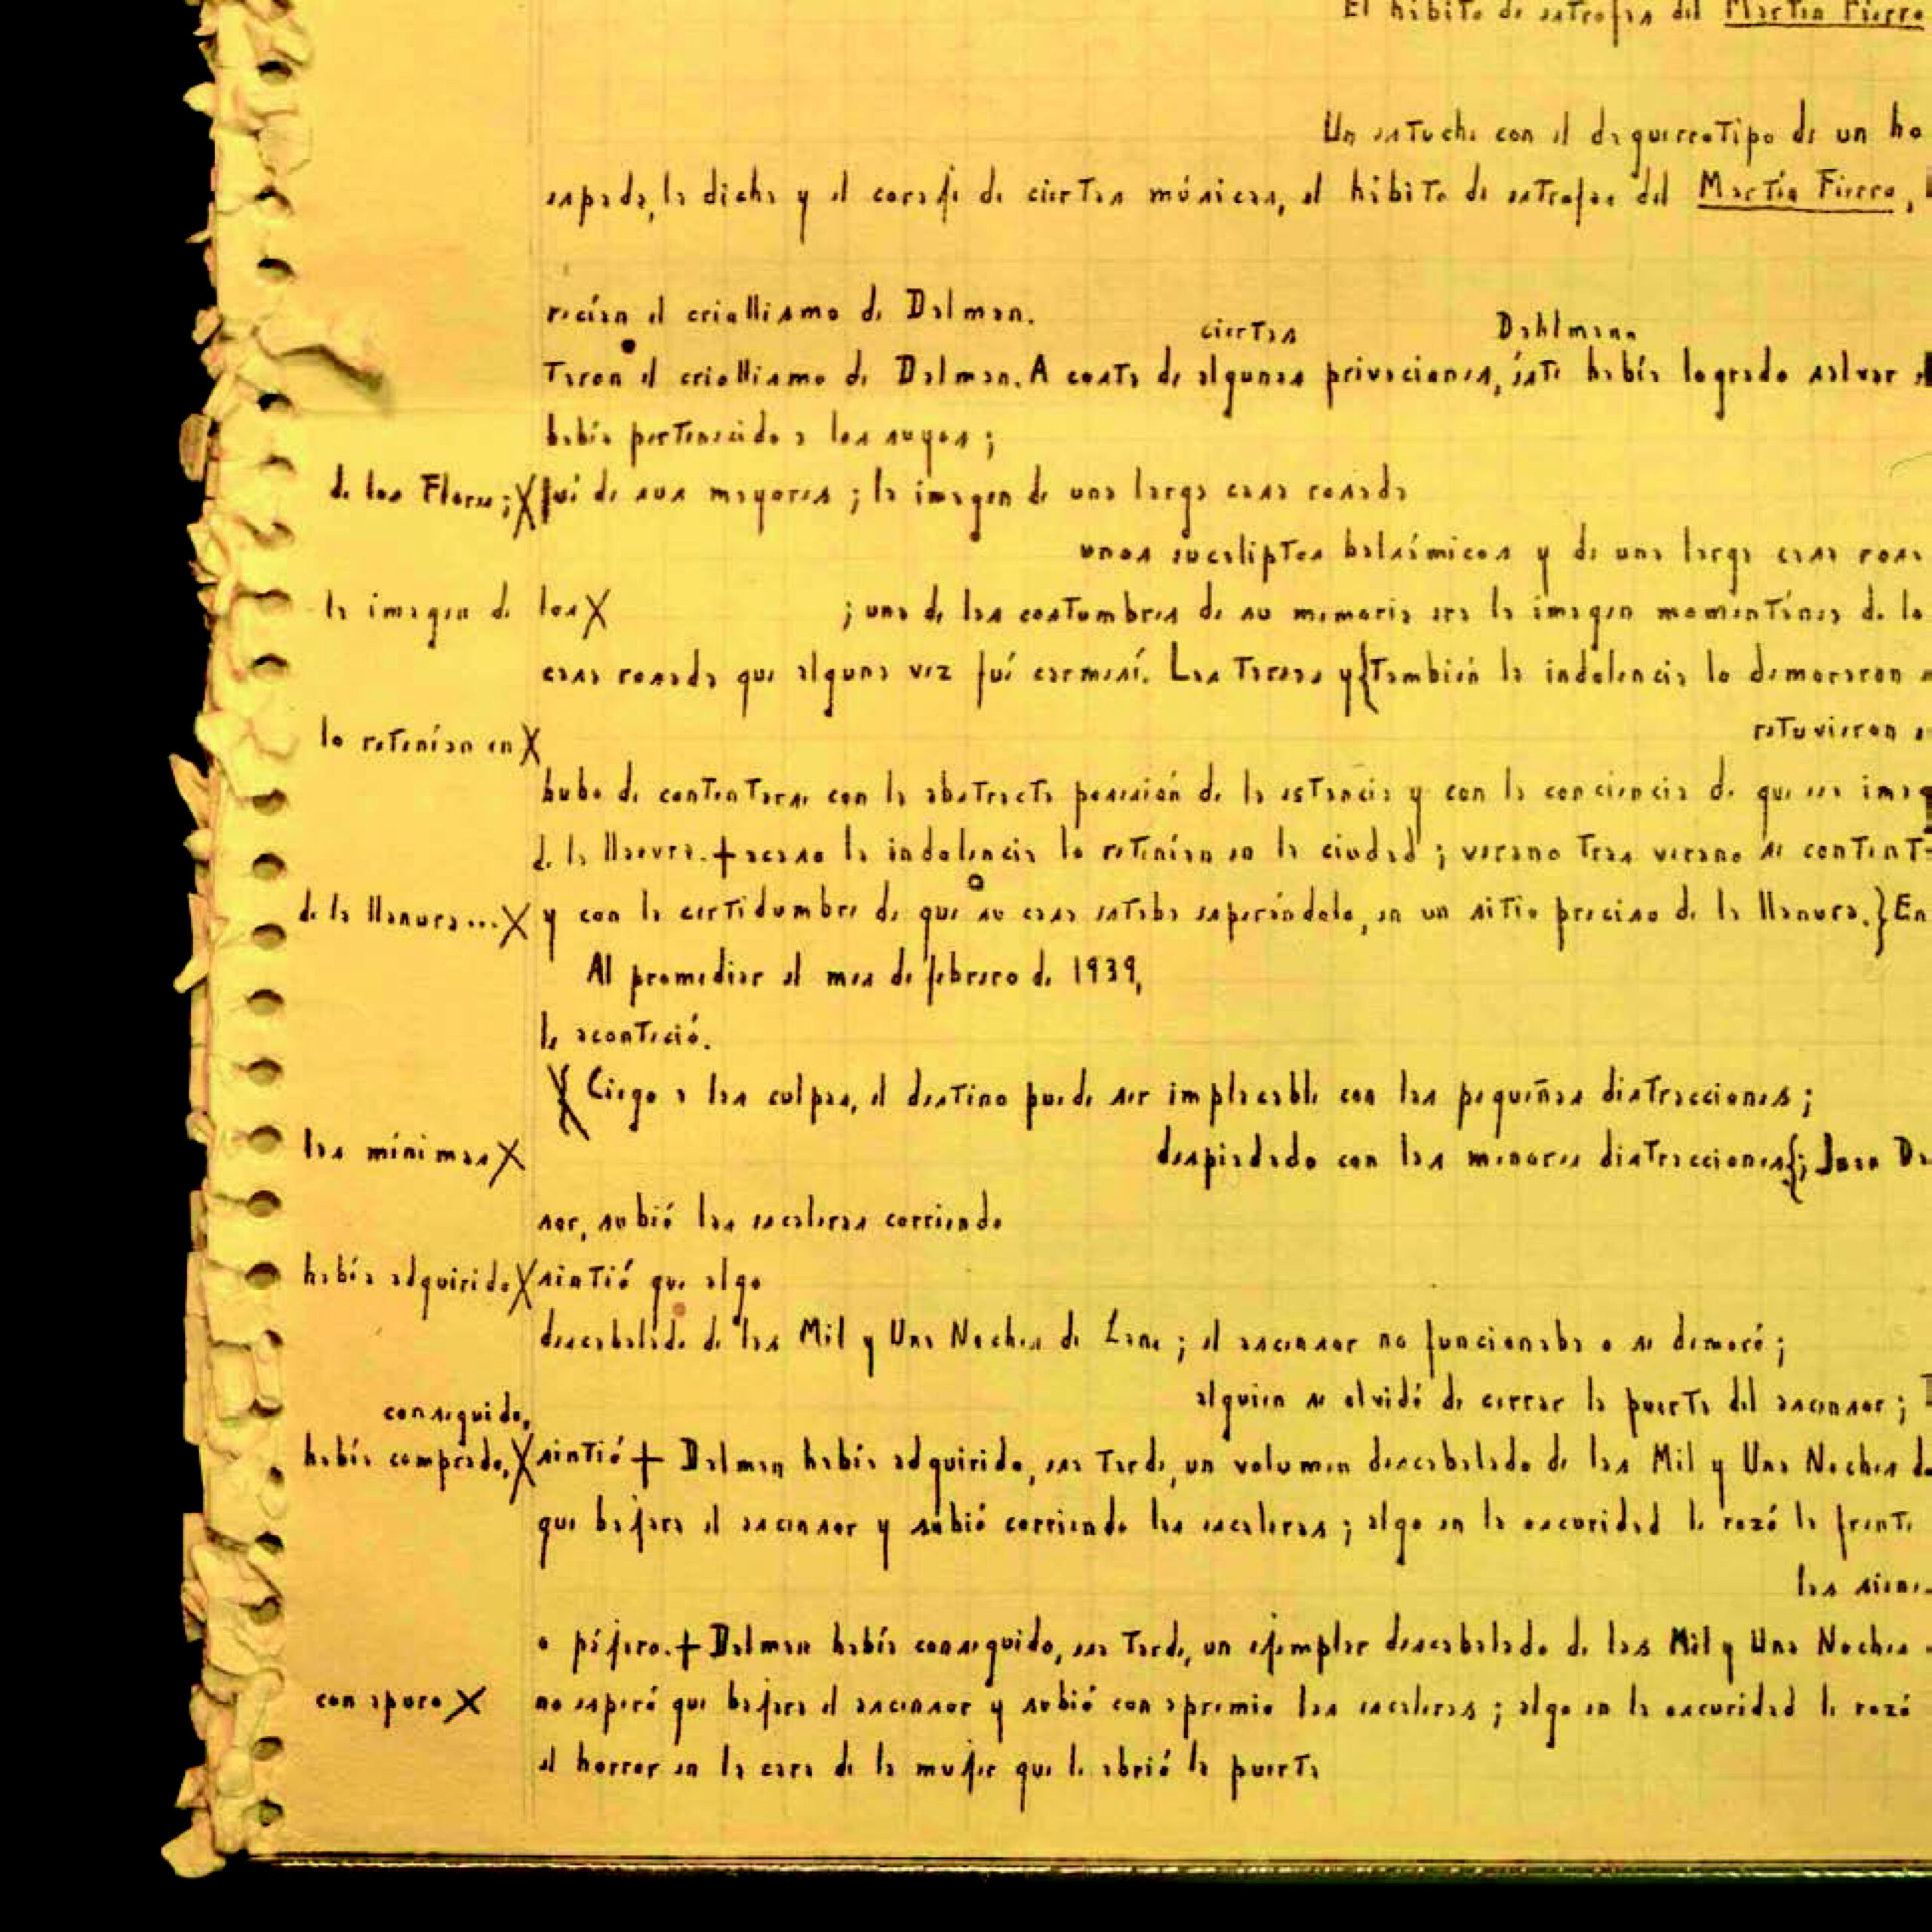 El hábito de estrofas del Martín Fierro
Un estuche con el daguerrotipo de un ho
espada, la dicha y el coraje de ciertas músicas, el hábito de estrofas del Martín Fierro,
recían el criollismo de Dalman.
ciertas Dahlmann
taron el criollismo de Dalman. A costa de algunas privaciones, éste había logrado salvar
había pertenecido a los suyos;
de los Flores; X fué de sus mayores; la imagen de una larga casa rosada
unos eucaliptos balsámicos y de una larga casa rosa
la imagen de los X ; una de las costumbres de su memoria era la imagen momentánea de lo
casa rosada que alguna vez fué carmesí. Las tareas y {también la indolencia lo demoraron
lo retenían en X retuvieron
hubo de contentarse con la abstracta posesión de la estancia y con la conciencia de que esa imag
de la llanura. + acaso la indolencia lo retenían en la ciudad; verano tras verano se content
de la llanura... X y con la certidumbre de que su casa estaba esperándolo, en un sitio preciso de la llanura.} En
Al promediar el mes de febrero de 1939,
le aconteció.
Ciego a las culpas, el destino puede ser implacable con las pequeñas distracciones;
las mínimas X despiadado con las menores distracciones{; Juan Da
sor, subió las escaleras corriendo
había adquirido X sintió que algo
descabalado de las Mil y Una Noches de Lane; el ascensor no funcionaba o se demoró;
alguien se olvidó de cerrar la puerta del ascensor;
conseguido,
había comprado, X sintió + Dalman había adquirido, esa tarde, un volumen descabalado de las Mil y Una Noches de
que bajara el ascensor y subió corriendo las escaleras; algo en la oscuridad le rozó la frente
las sienes
o pájaro. + Dalman había conseguido, esa tarde, un ejemplar descabalado de las Mil y Una Noches
con apuro X no esperó que bajara el ascensor y subió con apremio las escaleras; algo en la oscuridad le rozó
el horror en la cara de la mujer que le abrió la puerta